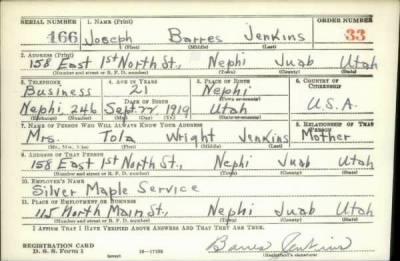 SERIAL NUMBER 1. NAME (Print) ORDER NUMBER
166 Joseph Barres Jenkins 33
(First) (Middle) (Last)
2. ADDRESS (Print)
158 East 1st North St., Nephi Juab Utah
(Number and street or R. F. D. number) (Town) (County) (State)
3. TELEPHONE 4. AGE IN YEARS 5. PLACE OF BIRTH 6. COUNTRY OF CITIZENSHIP
Business 21 Nephi
DATE OF BIRTH (Town or county)
Nephi 246 Sept. 22 1919 Utah U.S.A.
(Exchange) (Number) (Mo.) (Day) (Yr.) (State or country)
7. NAME OF PERSON WHO WILL ALWAYS KNOW YOUR ADDRESS 8. RELATIONSHIP OF THAT PERSON
Mrs. Tola Wright Jenkins Mother
(Mr., Mrs., Miss) (First) (Middle) (Last)
9. ADDRESS OF THAT PERSON
158 East 1st North St., Nephi Juab Utah
(Number and street or R. F. D. number) (Town) (County) (State)
10. EMPLOYER'S NAME
Silver Maple Service
11. PLACE OF EMPLOYMENT OR BUSINESS
115 North Main St., Nephi Juab Utah
(Number and street or R. F. D. number) (Town) (County) (State)
I AFFIRM THAT I HAVE VERIFIED ABOVE ANSWERS AND THAT THEY ARE TRUE.
REGISTRATION CARD
D. S. S. Form 1 16—17105 Barres Jenkins
(Registrant's signature)